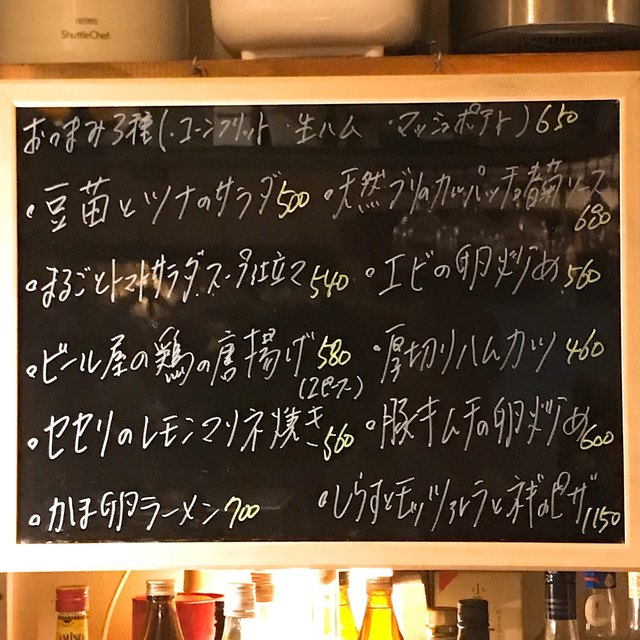 THERMOS
ShuttleChef
おつまみ3種(・コーンフリット ・生ハム ・マッシュポテト)650
・豆苗とツナのサラダ500
・天然ブリのカルパッチョ香菊ソース
680
・まるごとトマトサラダ スープ仕立て540
・エビの卵炒め560
・ビール屋の鶏の唐揚げ580
(2ピース)
・厚切りハムカツ460
・セセリのレモンマリネ焼き560
・豚キムチの卵炒め600
・かま卵ラーメン700
・しらすとモッツァレラとネギのピザ1150